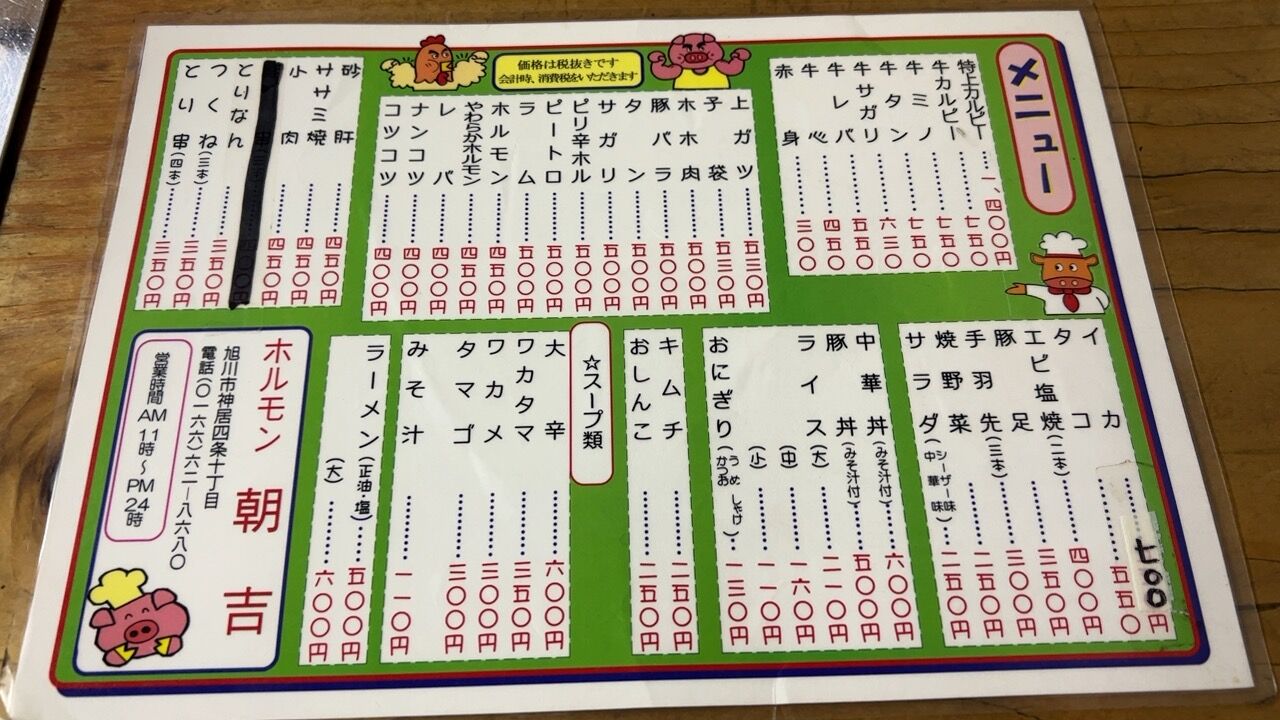 メニュー
特上カルビー 一、四〇〇円
牛カルビー 七五〇
牛ミノ 七五〇
牛タン 七五〇
牛サガリ 六三〇
牛レバ 五五〇
牛心 四五〇
赤身 三〇〇
価格は税抜きです
会計時、消費税をいただきます
上ガツ 五三〇円
子袋 五三〇円
ホホ肉 五〇〇円
豚バラ 五〇〇円
タン 五〇〇円
サガリ 五〇〇円
ピリ辛ホル 五〇〇円
ピートロ 五〇〇円
ラム 五〇〇円
ホルモン 四五〇円
やわらかホルモン 四五〇円
レバ 四〇〇円
ナンコツ 四〇〇円
コツコツ 四〇〇円
砂肝 四五〇円
ササミ焼 四五〇円
小肉 四五〇円
とりなん 三五〇円
つくね(三本) 三五〇円
とり串(四本) 三五〇円
イカ 七〇〇円
タコ 五五〇
エビ塩焼(二本) 四〇〇円
豚足 三五〇円
手羽先(三本) 三〇〇円
焼野菜 二五〇円
サラダ(シーザー味 中華味) 二五〇円
中華丼(みそ汁付) 六〇〇円
豚丼(みそ汁付) 五〇〇円
ライス(大) 二一〇円
(中) 一六〇円
(小) 一一〇円
おにぎり(うめ しゃけ かつお) 一三〇円
キムチ 二五〇円
おしんこ 二五〇円
☆スープ類
大辛 六〇〇円
ワカタマ 三五〇円
ワカメ 三〇〇円
タマゴ 三〇〇円
みそ汁 一一〇円
ラーメン(正油・塩) 五〇〇円
(大) 六〇〇円
ホルモン 朝吉
旭川市神居四条十丁目
電話(〇一六六)六二-八六八〇
営業時間 AM11時～PM24時